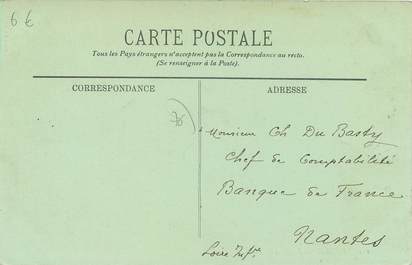 6 €
CARTE POSTALE
Tous les Pays étrangers n'acceptent pas la Correspondance au recto.
(Se renseigner à la Poste).
CORRESPONDANCE
ADRESSE
Monsieur Ch Du Basty
Chef de Comptabilité
Banque de France
Nantes
Loire Infre